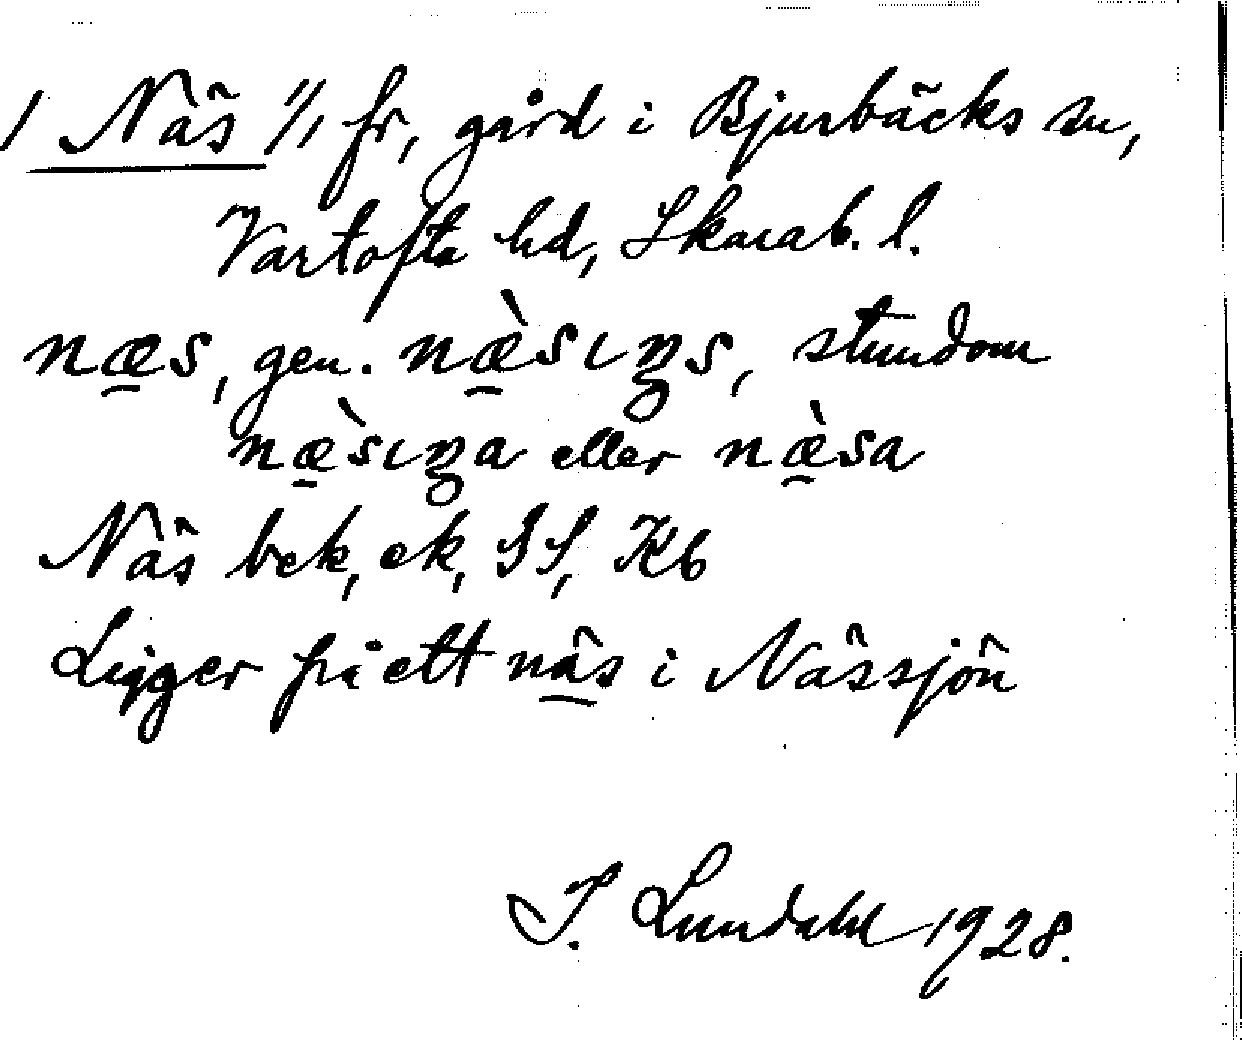 1 Näs 1/1 fr, gård i Bjurbäcks sn,
Vartofta hd, Skarab. l.
næ̠s, gen. næ̠̀sıŋs, stundom
næ̠̀sıŋa eller næ̠̀sa
Näs bek, ek, IS, Kb
Ligger på ett näs i Nässjön
I. Lundahl 1928.